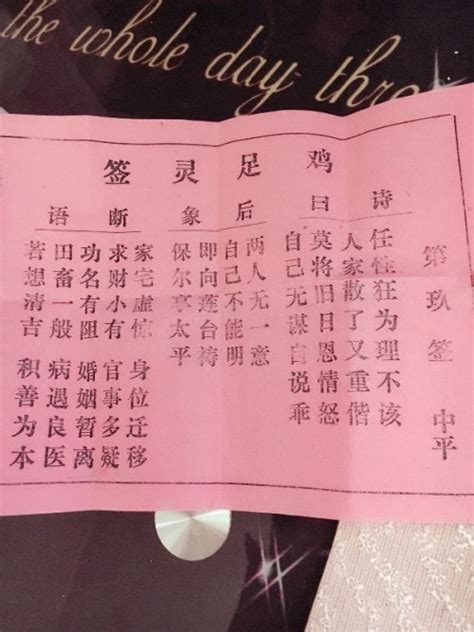 the whole day thr
鸡足灵签
第玖签 中平
诗曰
任性狂为理不该
人家散了又重偕
莫将旧日恩情怒
自己无谋自说乖
后象
两人无一意
自己不能明
即向莲台祷
保尔享太平
断语
家宅虚惊 身位迁移
求财小有 官事多疑
功名有阻 婚姻暂离
田畜一般 病遇良医
若想清吉 积善为本